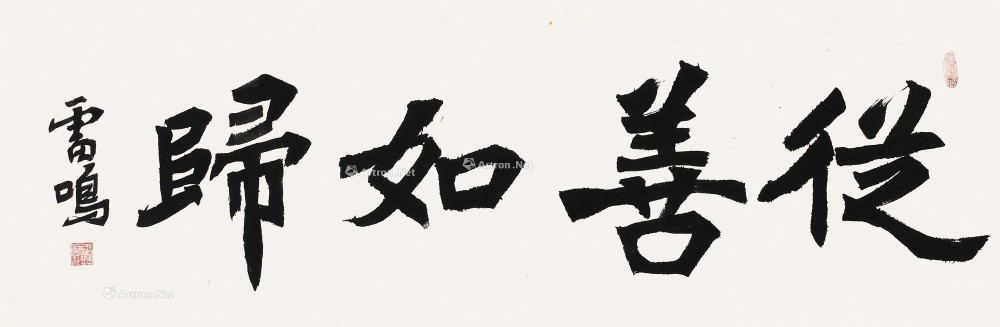 從善如歸
雷鳴
Artron.Net
Artron.Net
Artron.Net